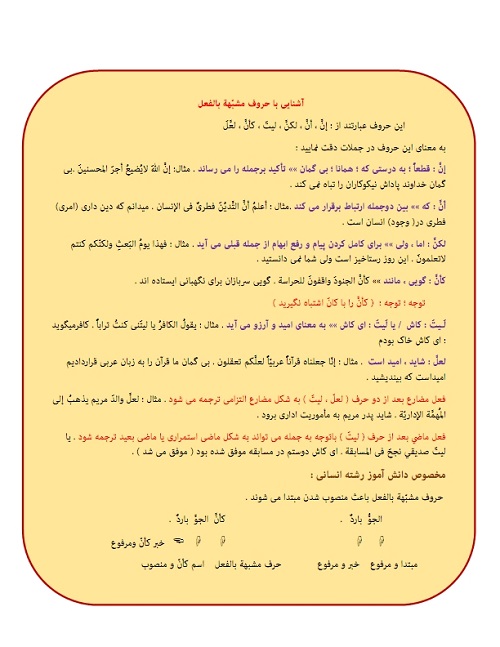 آشنایی با حروف مشبّهة بالفعل
این حروف عبارتند از : إنَّ ، أنَّ ، لکنَّ ، لیتَ ، کأنَّ ، لعلَّ
به معنای این حروف در جملات دقت نمایید :
إنَّ : قطعاً ؛ به درستی که ؛ همانا ؛ بی گمان »» تأکید برجمله را می رساند . مثال: إنَّ اللهَ لایُضیعُ أجرَ المحسنینَ .بی
گمان خداوند پاداش نیکوکاران را تباه نمی کند .
أنَّ : که »» بین دوجمله ارتباط برقرار می کند .مثال : أعلمُ أنَّ التَّدیُّنَ فطریٌّ فی الإنسان . میدانم که دین داری (امری)
فطری در( وجود) انسان است .
لکنَّ : اما ، ولی »» برای کامل کردن پیام و رفع ابهام از جمله قبلی می آید . مثال : فهذا یومُ البَعثِ ولکنّکم کنتم
لاتعلمونَ . این روز رستاخیز است ولی شما نمی دانستید .
کأنَّ : گویی ، مانند »» کأنَّ الجنودَ واقفونَ للحراسة . گویی سربازان برای نگهبانی ایستاده اند .
توجه ؛ توجه : ( کأنَّ را با کانَ اشتباه نگیرید )
لَـیتَ : کاش / یا لَیتَ : ای کاش »» به معنای امید و آرزو می آید . مثال : یقولُ الکافرُ یا لیتَنی کنتُ تراباً . کافرمیگوید
: ای کاش خاک بودم
لعلَّ : شاید ، امید است . مثال : إنّا جعلناه قرآناً عربیّاً لعلّکم تعقلون . بی گمان ما قرآن را به زبان عربی قراردادیم
امیداست که بیندیشید .
فعل مضارع بعد از دو حرف ( لعلَّ ، لیتَ ) به شکل مضارع التزامی ترجمه می شود . مثال : لعلَّ والدَ مریم یذهبُ إلی
المُهمَّة الإداریّة . شاید پدر مریم به مأموریت اداری برود .
فعل ماضی بعد از حرف ( لیتَ ) باتوجه به جمله می تواند به شکل ماضی استمراری یا ماضی بعید ترجمه شود . یا
لیتَ صدیقي نَجَحَ في المسابقة . ای کاش دوستم در مسابقه موفق شده بود ( موفق می شد ) .
مخصوص دانش آموز رشته انسانی :
حروف مشبّهة بالفعل باعث منصوب شدن مبتدا می شوند .
الجوُّ باردٌ . کأنَّ الجوَّ باردٌ .
خبر کأنّ ومرفوع
مبتدا و مرفوع خبر و مرفوع حرف مشبهة بالفعل اسم کأنّ و منصوب